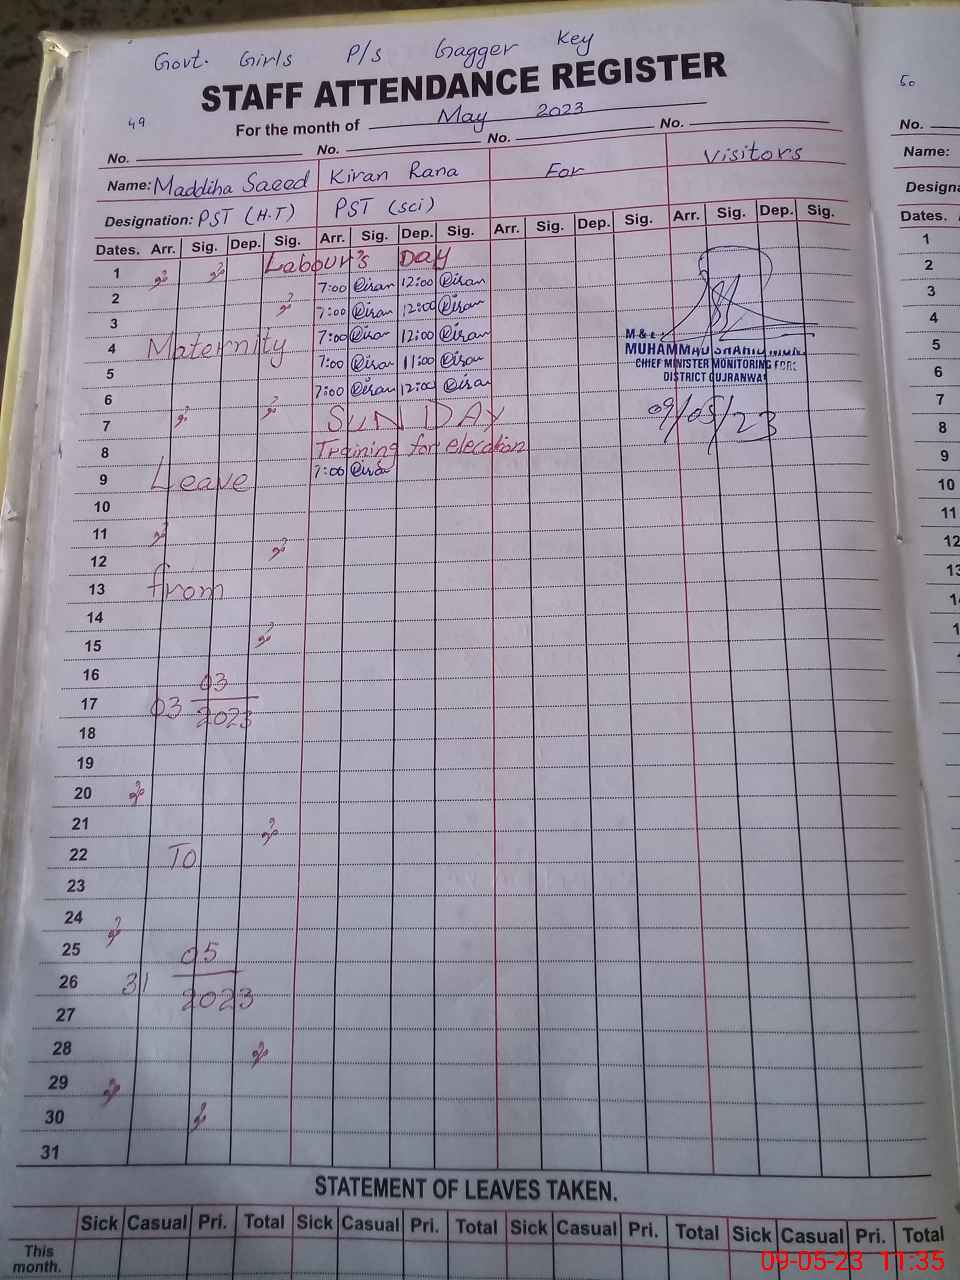 Govt. Girls P/S Gagger Key
STAFF ATTENDANCE REGISTER
49 For the month of May 2023
50
No. No. No. No.
No.
Name: Maddiha Saeed Kiran Rana For Visitors
Name:
Designation: PST (H.T) PST (sci)
Dates. Arr. Sig. Dep. Sig. Arr. Sig. Dep. Sig. Arr. Sig. Dep. Sig. Arr. Sig. Dep. Sig.
Dates.
1 Labour's Day
2 7:00 Kiran 12:00 Kiran
3 7:00 Kiran 12:00 Kiran
4 Maternity 7:00 Kiran 12:00 Kiran
5 7:00 Kiran 11:00 Kiran
6 7:00 Kiran 12:00 Kiran
7 SUN DAY
8 Training for elecation
9 Leave 7:00 Kiran
10
11
12
13 from
14
15
16 03
17 03 2023
18
19
20
21
22 TO
23
24
25 05
26 31 2023
27
28
29
30
31
M & E
MUHAMMAD
CHIEF MINISTER MONITORING
DISTRICT GUJRANWALA
09/05/23
1
2
3
4
5
6
7
8
9
10
11
12
13
STATEMENT OF LEAVES TAKEN.
Sick Casual Pri. Total Sick Casual Pri. Total Sick Casual Pri. Total Sick Casual Pri. Total
This
month.
09-05-23 11:35